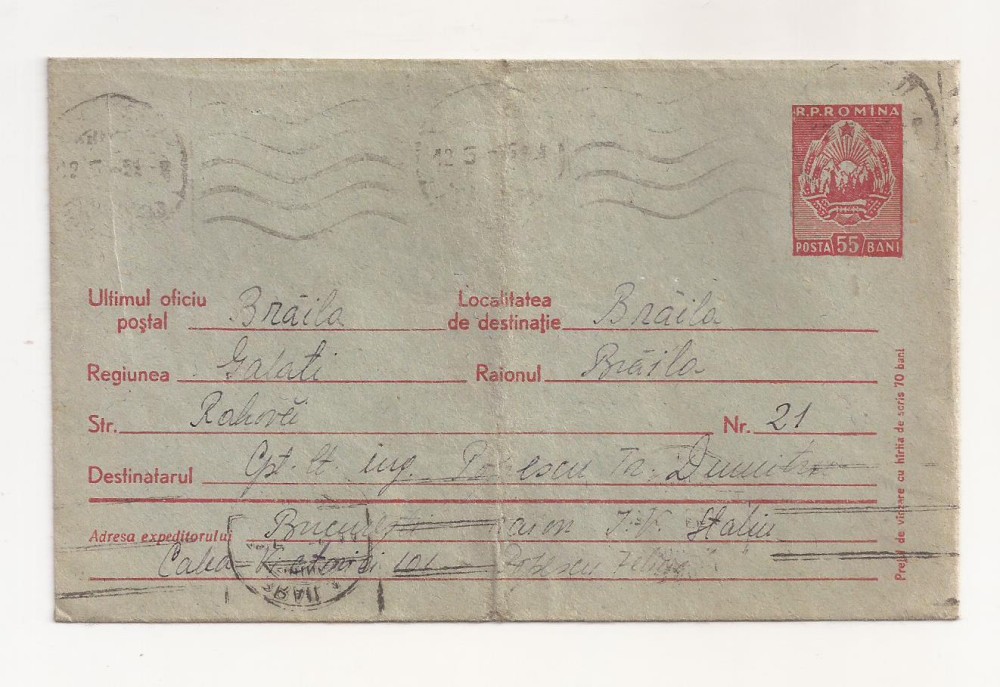 R.P.ROMINA
12 5
POSTA 55 BANI
Ultimul oficiu poștal Brăila Localitatea de destinație Brăila
Regiunea Galati Raionul Brăila
Str. Rahovei Nr. 21
Destinatarul Cpt. lt. ing. Popescu Tr. Dumitru
Adresa expeditorului București raion I.V. Stalin
Calea Victoriei 101 Popescu
Prețul de vînzare cu hîrtia de scris 70 bani